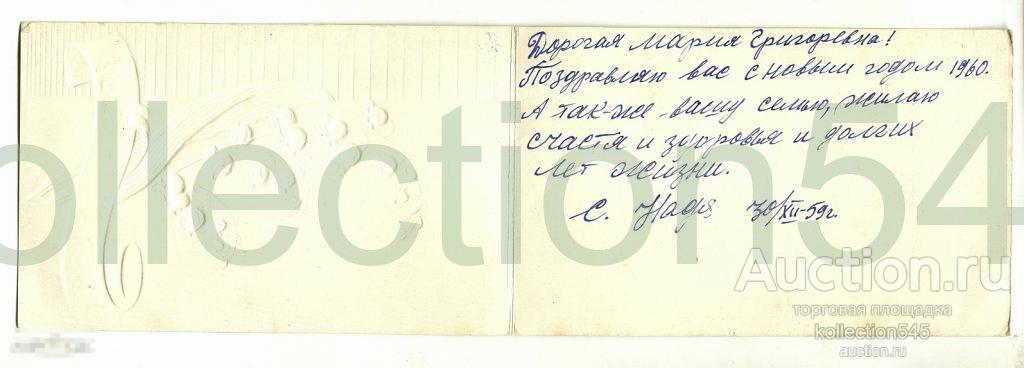 Дорогая Мария Григоревна!
Поздравляю вас с новым годом 1960.
А так-же вашу семью, жилаю
счастя и здоровья и долгих
лет жизни.
С. Надя 30/XII-59г.
ollection54
Auction.ru
торговая площадка
kollection545
auction.ru